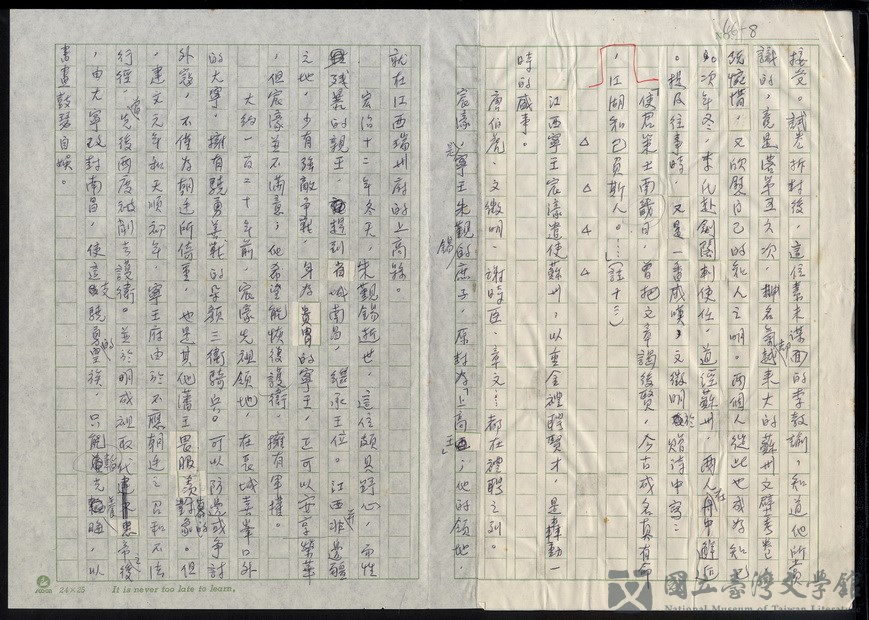 86-8
接受。試卷拆封後，這位素未謀面的李教諭，知道他所賞
識的，竟是落第五次，却名氣越來大的蘇州文壁考卷
既惋惜，又欣慰自己的知人之明。兩個人從此也成好知己
次年冬，李氏赴劍閣利使任，道經蘇州，兩人在舟中解近
。提及往事時，又是一番感嘆，文徵明於贈詩中寫：
「使君策士南畿日，曾把文章謁後賢，今古成名真有命
，江湖知己負斯人。……（註十三）
△ △ △ △
江西寧王宸濠遣使蘇州，以重金禮聘賢才，是轟動一
時的盛事。
唐伯虎、文徵明、謝時臣、章文…都在禮聘之列。
宸濠，是寧王朱覲錫的庶子，原封為「上高王」；他的領地，
就在江西瑞州府的上高縣。
弘治十二年冬天，朱覲錫逝世，這位頗具野心，而性
殘暴的親王，趕到省城南昌，繼承王位。江西非邊疆
之地，少有強敵爭戰，身為貴胄的寧王，正可以安享榮華
，但宸濠並不滿意；他希望能恢復護衛，擁有軍權。
大約一百二十年前，宸濠先祖領地，在長城喜峯口外
的大寧，擁有驍勇善戰的朵顏三衛騎兵。可以防邊或爭討
外寇，不僅為朝廷所倚重，也是其他藩王畏服、羨慕的對象。但
，建文元年和天順初年，寧王府由於不應朝廷之召和不法
行徑，曾先後兩度被削去護衛。並於明成祖取代建文惠帝後
，由大寧改封南昌，使這支驍勇的望族，只能韜光養晦，以
書畫鼓瑟自娛。
24×25
It is never too late to learn.
國立臺灣文學館
National Museum of Taiwan Literature